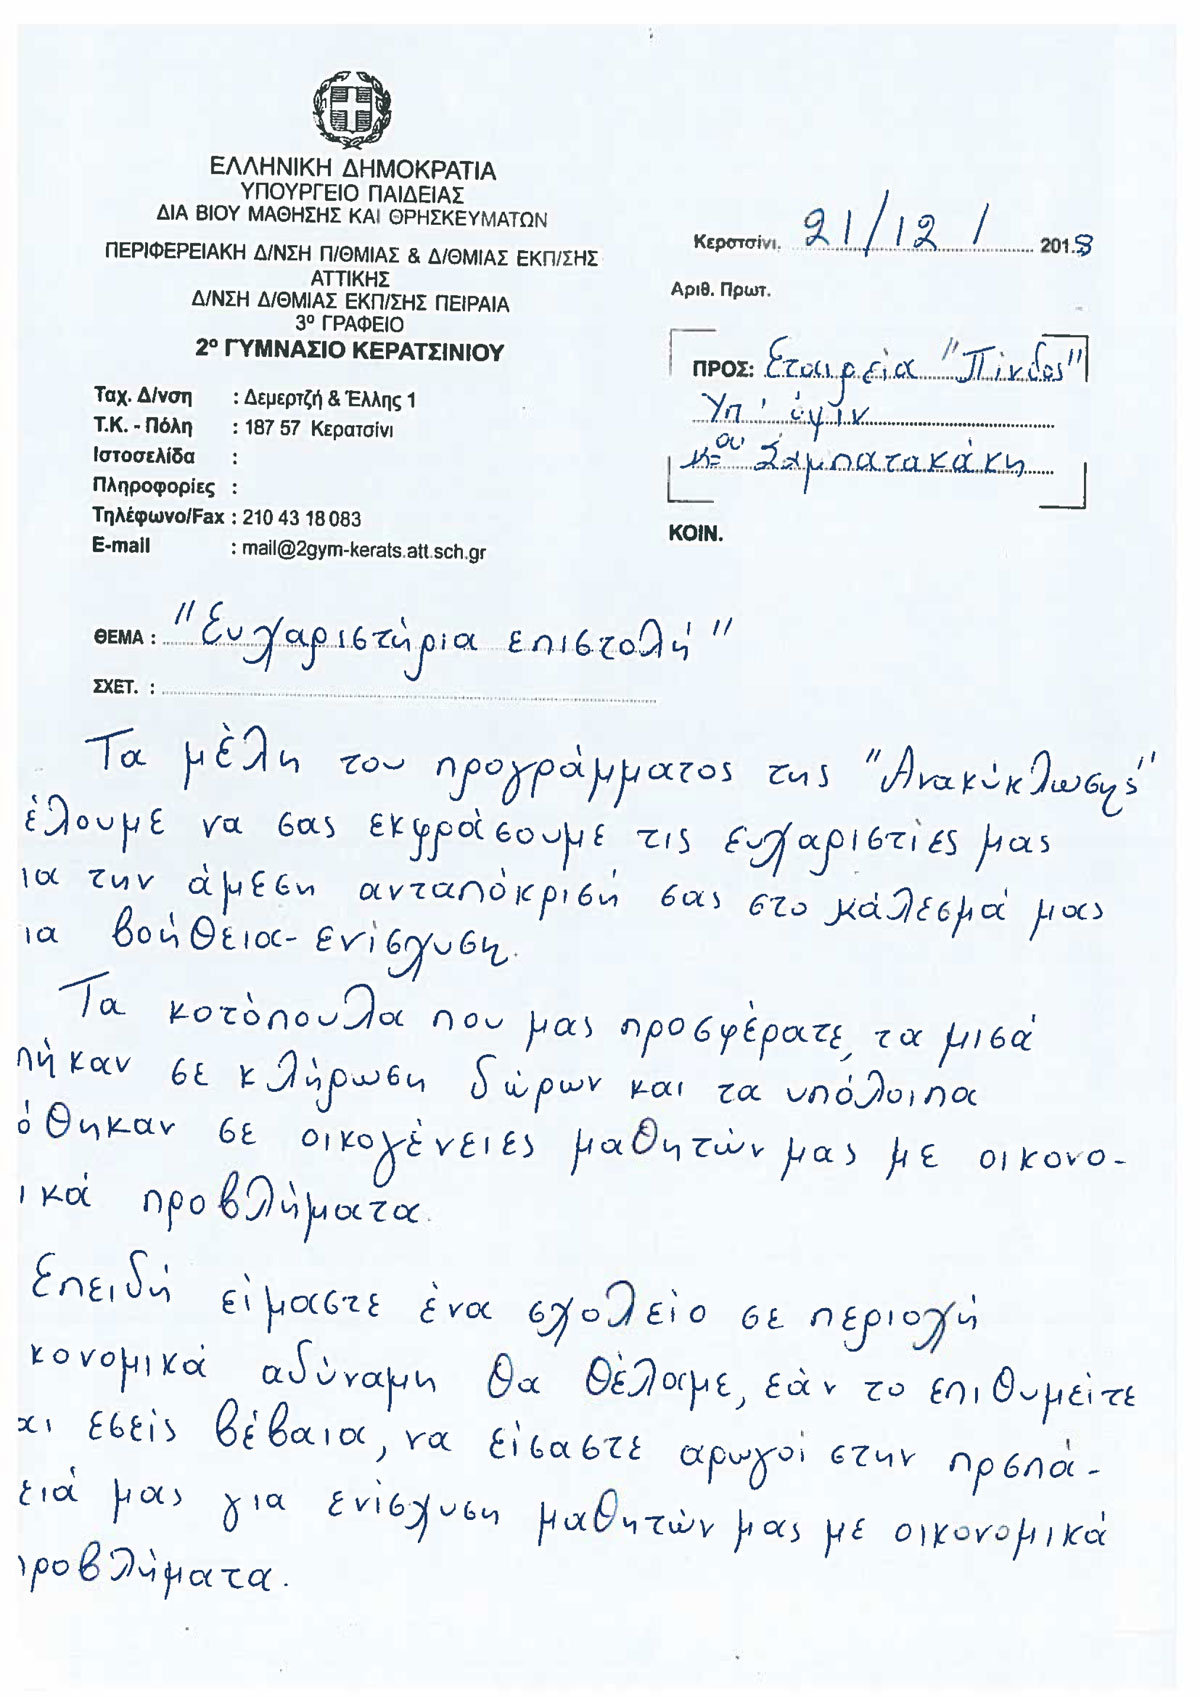 ΕΛΛΗΝΙΚΗ ΔΗΜΟΚΡΑΤΙΑ
ΥΠΟΥΡΓΕΙΟ ΠΑΙΔΕΙΑΣ
ΔΙΑ ΒΙΟΥ ΜΑΘΗΣΗΣ ΚΑΙ ΘΡΗΣΚΕΥΜΑΤΩΝ
ΠΕΡΙΦΕΡΕΙΑΚΗ Δ/ΝΣΗ Π/ΘΜΙΑΣ & Δ/ΘΜΙΑΣ ΕΚΠ/ΣΗΣ
ΑΤΤΙΚΗΣ
Δ/ΝΣΗ Δ/ΘΜΙΑΣ ΕΚΠ/ΣΗΣ ΠΕΙΡΑΙΑ
3º ΓΡΑΦΕΙΟ
2º ΓΥΜΝΑΣΙΟ ΚΕΡΑΤΣΙΝΙΟΥ
Ταχ. Δ/νση : Δεμερτζή & Έλλης 1
Τ.Κ. - Πόλη : 187 57 Κερατσίνι
Ιστοσελίδα :
Πληροφορίες :
Τηλέφωνο/Fax : 210 43 18 083
E-mail : mail@2gym-kerats.att.sch.gr
Κερατσίνι. 21/12/ 2018
Αριθ. Πρωτ.
ΠΡΟΣ: Εταιρεία "Πίνδος"
Υπ' όψιν
κ=ου Σαμπατακάκη
ΚΟΙΝ.
ΘΕΜΑ : "Ευχαριστήρια επιστολή"
ΣΧΕΤ. :
Τα μέλη του προγράμματος της "Ανακύκλωσης"
έλουμε να σας εκφράσουμε τις ευχαριστίες μας
ια την άμεση ανταπόκρισή σας στο κάλεσμά μας
ια βοήθεια-ενίσχυση.
Τα κοτόπουλα που μας προσφέρατε, τα μισά
πήκαν σε κλήρωση δώρων και τα υπόλοιπα
όθηκαν σε οικογένειες μαθητών μας με οικονο-
ικά προβλήματα.
Επειδή είμαστε ένα σχολείο σε περιοχή
κονομικά αδύναμη θα θέλαμε, εάν το επιθυμείτε
αι εσείς βέβαια, να είσαστε αρωγοί στην πρσπά-
ειά μας για ενίσχυση μαθητών μας με οικονομικά
ροβλήματα.